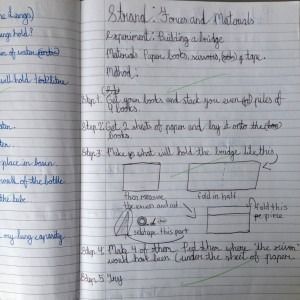 e Lungs)
ungs hold?
of water
will hold 1 litre
place in basin.
mouth of the bottle
the tube
my lung capacity
Strand: Forces and Materials
Experiment: Building a bridge
Materials: Paper, books, scissors, & tape.
Method:
Step 1. Get your books and stack you even piles of
4 books.
Step 2. Get 2 sheets of paper and lay it onto the
books.
Step 3. Make what will hold the bridge like this
then measure
the and cut
fold in half
fold this
piece
this part
Step 4. Make 4 of them. Put them where "the river"
would have been (under the sheet of paper
Step 5. Try